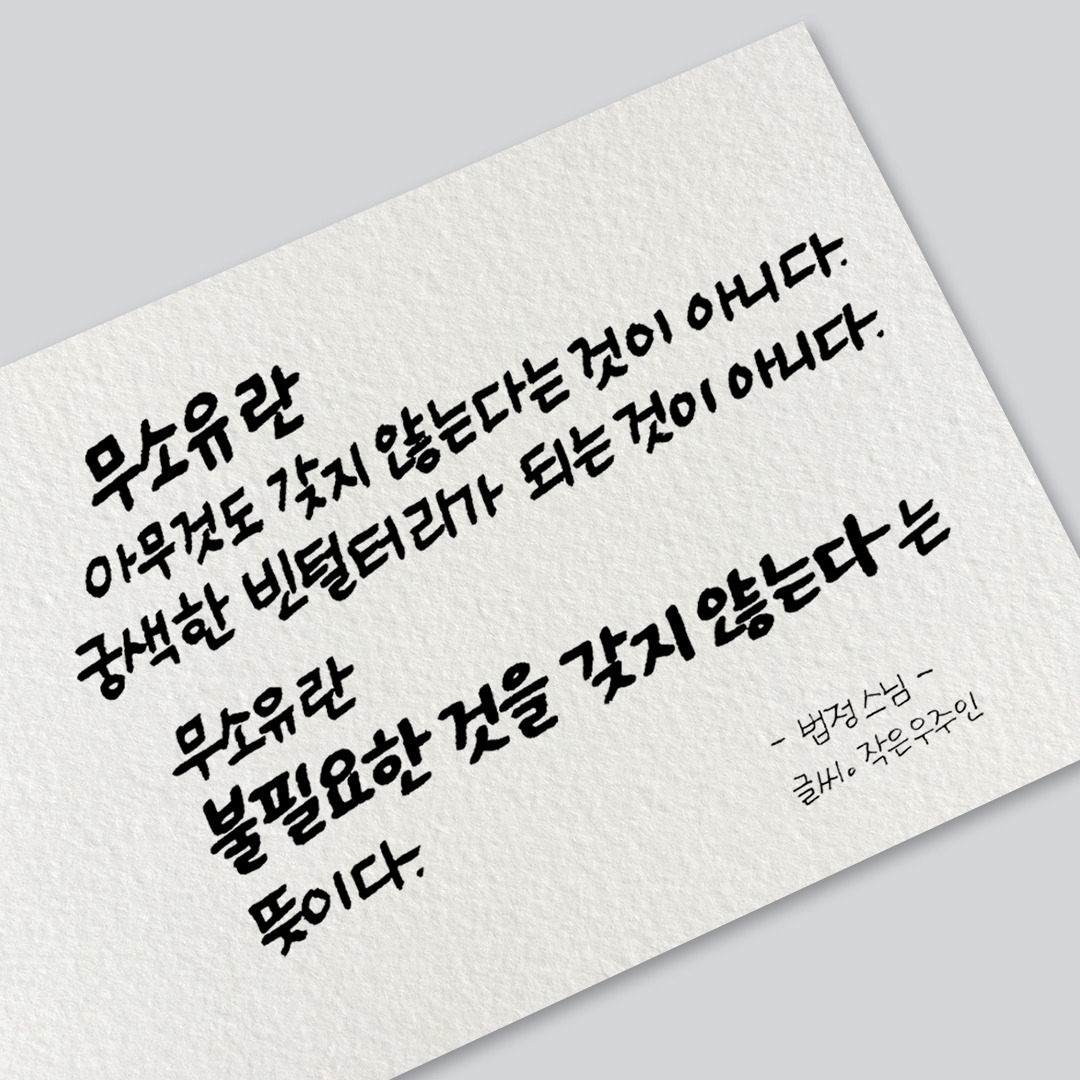 무소유란
아무것도 갖지 않는다는 것이 아니다.
궁색한 빈털터리가 되는 것이 아니다.
무소유란
불필요한 것을 갖지 않는다는
뜻이다.
- 법정 스님 -
글씨。작은우주인